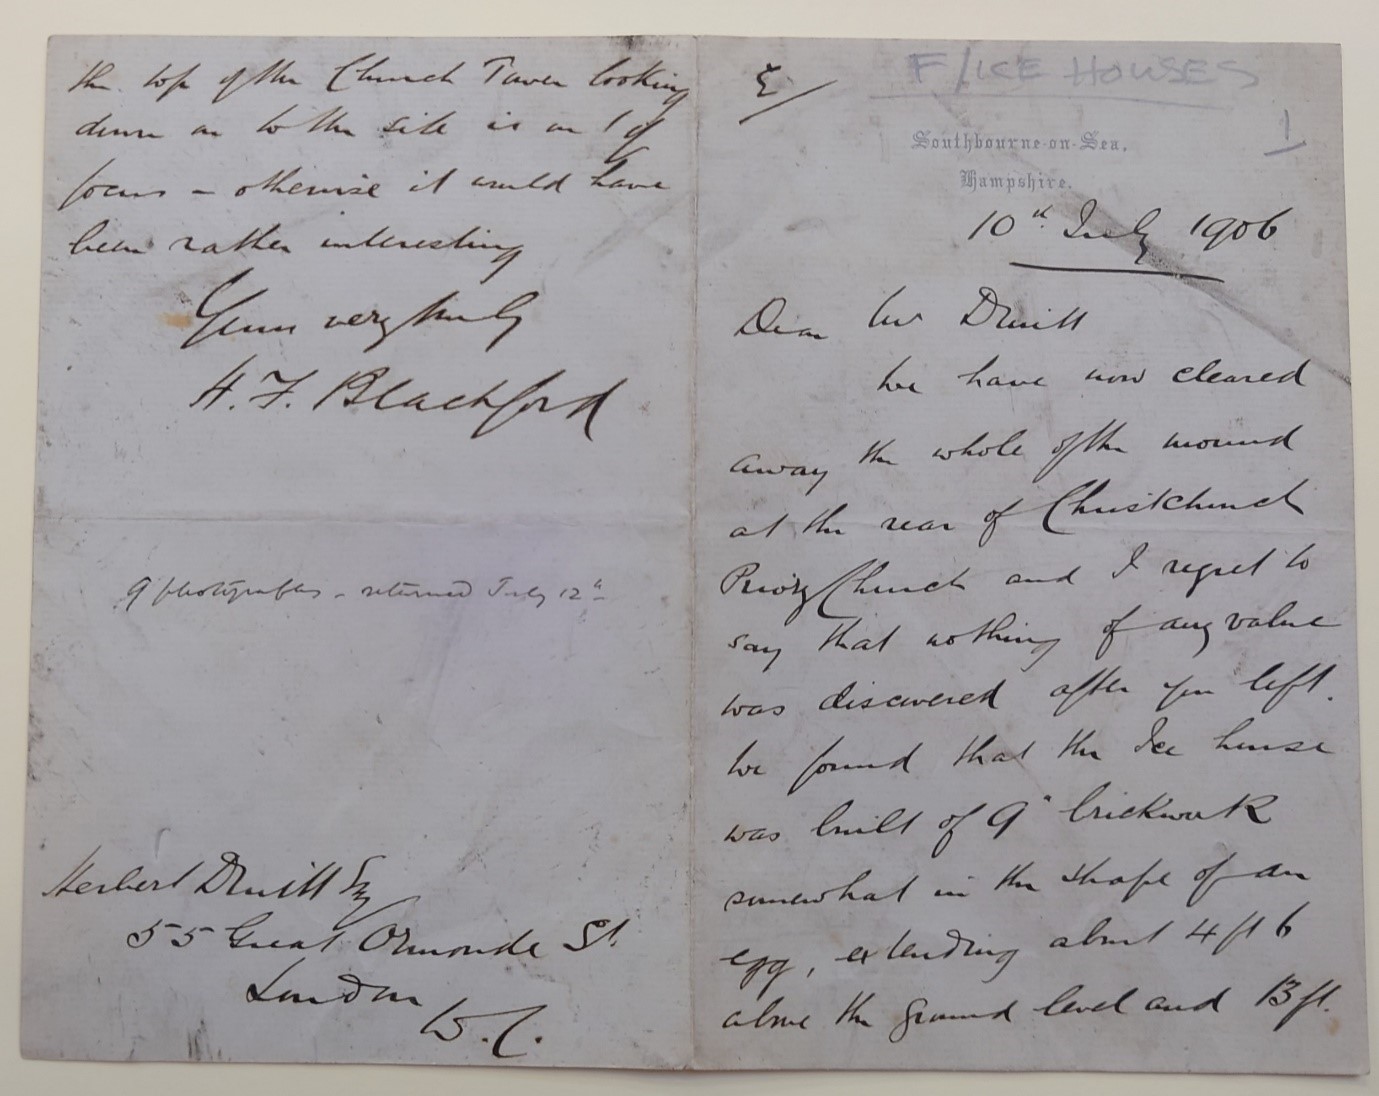 F/ICE HOUSES
1
Southbourne-on-Sea,
Hampshire.
10th July 1906
Dear Mr Druitt
We have now cleared
away the whole of the mound
at the rear of Christchurch
Priory Church and I regret to
say that nothing of any value
was discovered after you left.
We found that the Ice house
was built of 9" brickwork
somewhat in the shape of an
egg, extending about 4 ft 6
above the ground level and 13 ft.
the top of the Church Tower looking
down on to the site is out of
focus – otherwise it would have
been rather interesting
Yours very truly
H. F. Blachford
9 photographs – returned July 12th
Herbert Druitt Esq
55 Great Ormonde St.
London
W.C.